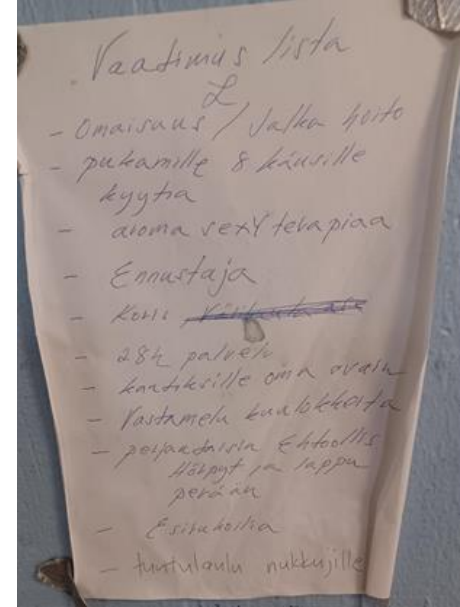 Vaatimus lista
- Omaisuus / Jalka hoito
- pukamille & känsille
kyytiä
- aroma sexY terapiaa
- Ennustaja
- Koris
- 28h palvelu
- kaatiksille oma avain
- Vastamelu kuulokkeita
- perjantaisin Ehtoollis
Höhpyt ja lappu
perään
- Esirukoilia
- tuutulaulu nukkujille